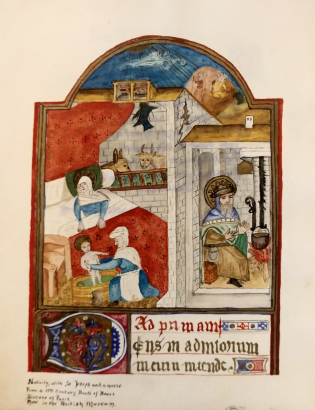 Ad primam
Eus in adiutorium
meum intende.
Nativity, with St Joseph and a nurse
From a 15th Century Book of Hours
Diocese of Paris
Now in the British Museum.